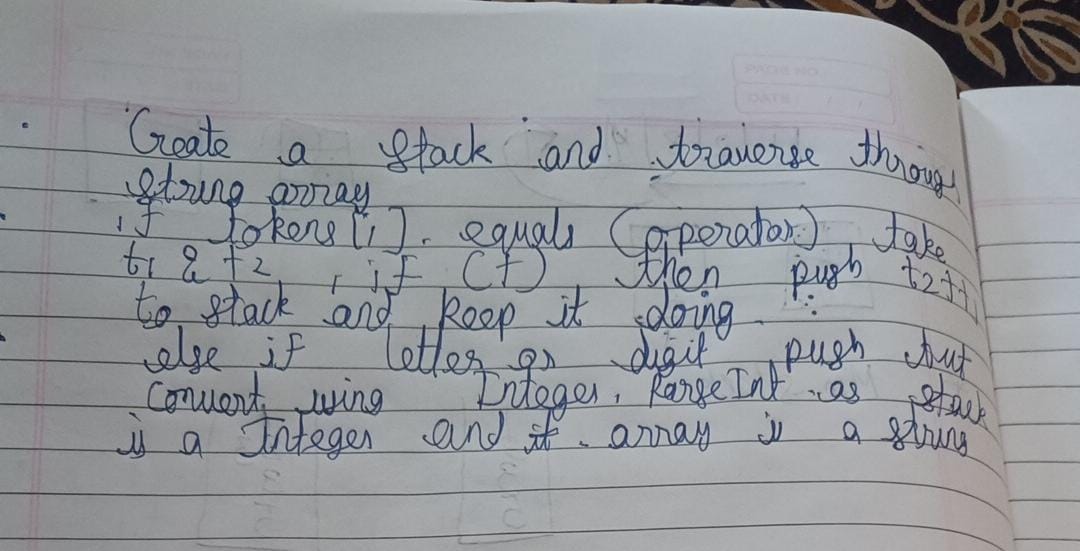 PAGE NO.
DATE / /
Create a stack and traverse through
string array
if tokens[i]. equals (operator) take
t1 & t2 , if (+) then push t2+t1
to stack and keep it doing.
else if letter or digit push but
convert using Integer. ParseInt as stack
is a Integer and it array is a string